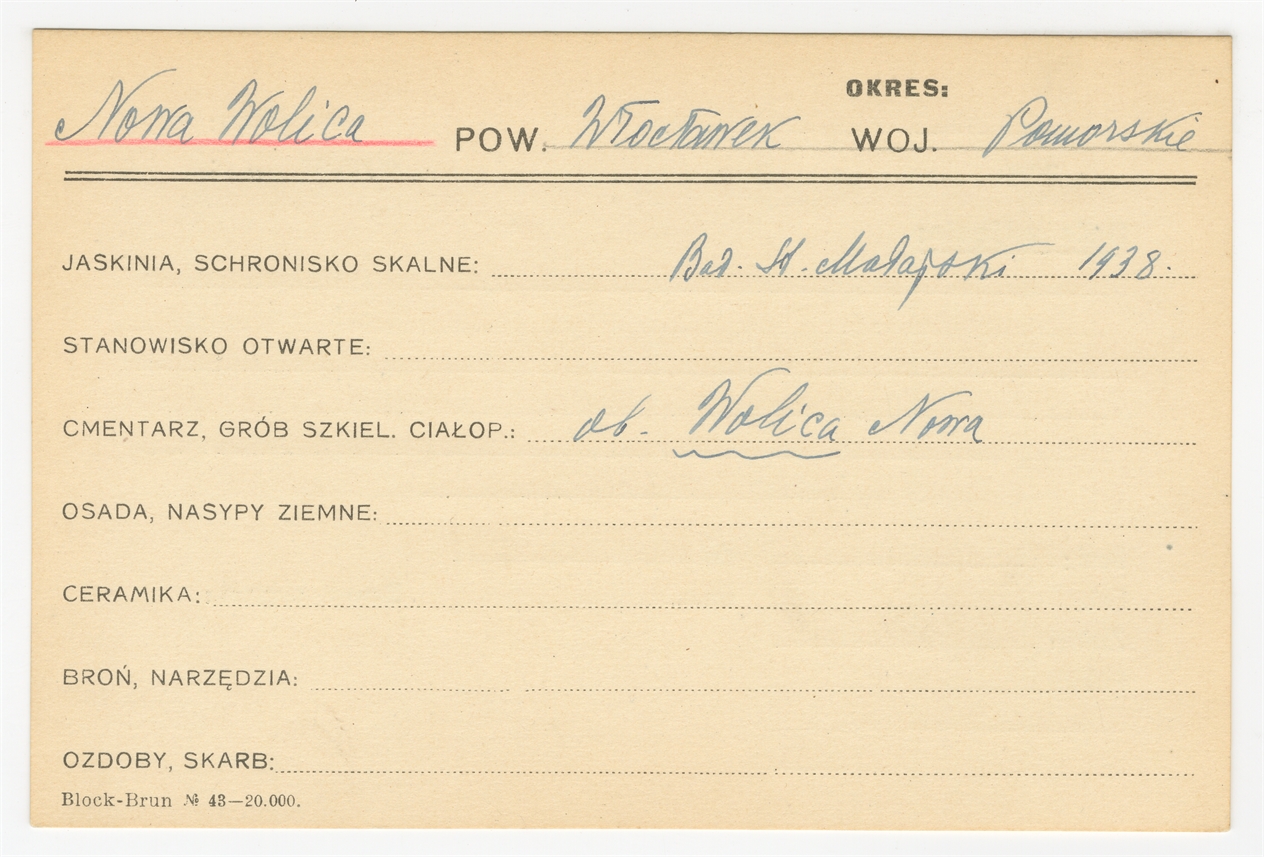 OKRES:
Nowa Wolica POW. Włocławek WOJ. Pomorskie
JASKINIA, SCHRONISKO SKALNE: Bad. St. Madajski 1938.
STANOWISKO OTWARTE:
CMENTARZ, GRÓB SZKIEL. CIAŁOP.: ob. Wolica Nowa
OSADA, NASYPY ZIEMNE:
CERAMIKA:
BROŃ, NARZĘDZIA:
OZDOBY, SKARB:
Block-Brun № 43—20.000.